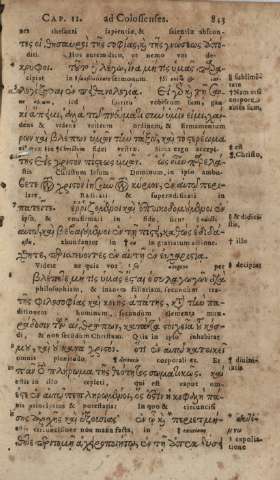 CAP. II. ad Colossenses. 813
nes thesauri sapientiæ, & scientiæ abscon-
τες οἱ θησαυροὶ τῆς σοφίας, καὶ τῆς γνώσεως ἀπό-
diti. Hoc autem dico, ut nemo vos de-
κρυφοι. τοῦτο δὲ λέγω, ἵνα μή τις ὑμᾶς
cipiat in sermonum.
ἐν πιθανολογίᾳ. Εἰ γὰρ, καὶ τῇ σαρ-
ne sum, spiritu vobiscum sum, gau-
κὶ ἄπειμι, ἀλλὰ τῷ πνεύματι σὺν ὑμῖν εἰμι, χαί-
dens & videns vestrum ordinem, & firmamentum
ρων καὶ βλέπων ὑμῶν τὴν τάξιν, καὶ τὸ στερέωμα
fidei vestræ.
τῆς εἰς χριστὸν πίστεως ὑμῶν. ὡς οὖν παρελά-
Christum Iesum Dominum, in ipso ambu-
βετε τὸν χριστὸν ἰησοῦν τὸν κύριον, ἐν αὐτῷ περιπα-
late, Radicati & superædificati in
τεῖτε. ἐῤῥιζωμένοι καὶ ἐποικοδομούμενοι ἐν
ipso, & fide,
αὐτῷ, καὶ βεβαιούμενοι ἐν τῇ πίστει, καθὼς ἐδιδά-
abundantes in in gratiarum actione.
χθητε, περισσεύοντες ἐν αὐτῇ ἐν εὐχαριστίᾳ.
Videte ne quis vos per
βλέπετε μή τις ὑμᾶς ἔσται ὁ συλαγωγῶν διὰ
philosophiam, & inanem fallaciam, secundum
τῆς φιλοσοφίας καὶ κενῆς ἀπάτης, κατὰ τὴν πα-
ditionem hominum, secundum elementa mun-
ράδοσιν τῶν ἀνθρώπων, κατὰ τὰ στοιχεῖα τοῦ κόσ-
di, & non secundum Christum. Quia in ipso inhabitat
μου, καὶ οὐ κατὰ χριστόν. ὅτι ἐν αὐτῷ κατοικεῖ
omnis plenitudo corporaliter. Et
πᾶν τὸ πλήρωμα τῆς θεότητος σωματικῶς, καὶ
estis in illo repleti, qui est caput om-
ἐστὲ ἐν αὐτῷ πεπληρωμένοι, ὅς ἐστιν ἡ κεφαλὴ πά-
nis principatus & potestatis: In quo & circuncisi
σης ἀρχῆς καὶ ἐξουσίας. ἐν ᾧ καὶ περιετμή-
estis circuncisione non manu facta, in
θητε περιτομῇ ἀχειροποιήτῳ, ἐν τῇ ἀπεκδύσει
‖ sublimi-
tate
† Nam etsi
corpore
absens sum,
‖ Christo,
† illo
† decipiat
† divinitatis
† expoliatione